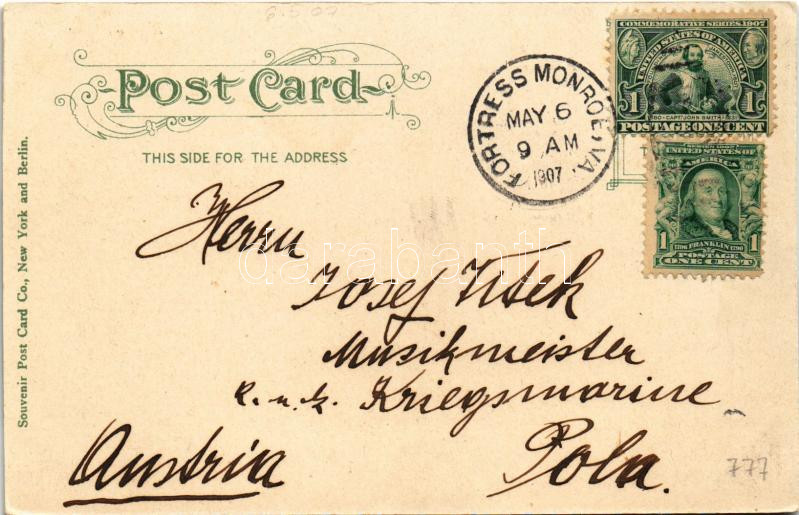 6.5.07
COMMEMORATIVE SERIES 1907
UNITED STATES OF AMERICA
1 1
1580 · CAPT. JOHN SMITH · 1631
POSTAGE ONE CENT
Post Card
THIS SIDE FOR THE ADDRESS
FORTRESS MONROE, VA.
MAY 6
9 AM
1907
SERIES 1902
UNITED STATES OF
AMERICA
1 1
FRANKLIN
POSTAGE
ONE CENT
Souvenir Post Card Co., New York and Berlin.
Herrn
darabanth
Josef
Musikmeister
k. u. k. Kriegsmarine
Austria Pola.
777